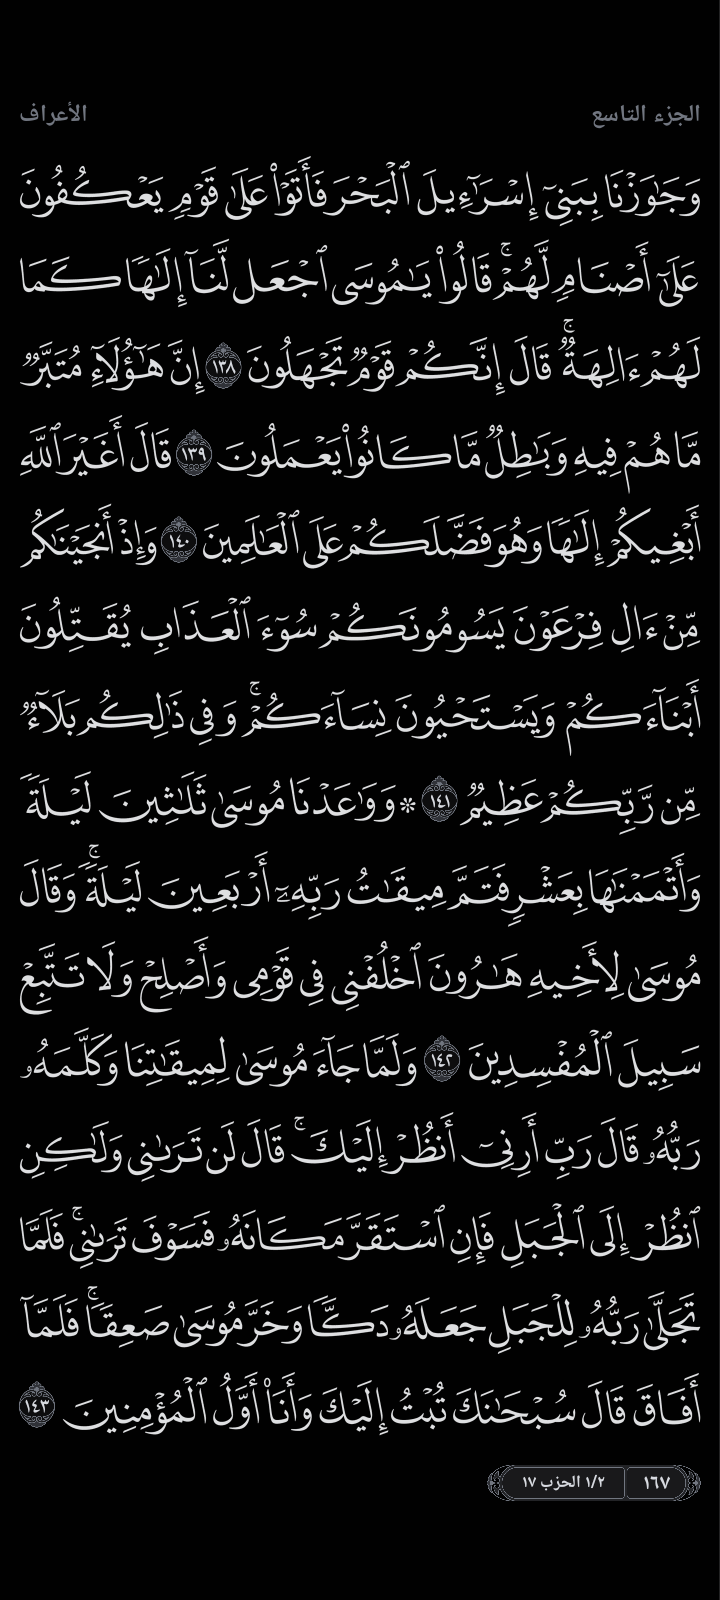 الجزء التاسع
الأعراف
وَجَٰوَزْنَا بِبَنِىٓ إِسْرَٰٓءِيلَ ٱلْبَحْرَ فَأَتَوْا۟ عَلَىٰ قَوْمٍ يَعْكُفُونَ
عَلَىٰٓ أَصْنَامٍ لَّهُمْ ۚ قَالُوا۟ يَٰمُوسَى ٱجْعَل لَّنَآ إِلَٰهًا كَمَا
لَهُمْ ءَالِهَةٌ ۚ قَالَ إِنَّكُمْ قَوْمٌ تَجْهَلُونَ ١٣٨ إِنَّ هَٰٓؤُلَآءِ مُتَبَّرٌ
مَّا هُمْ فِيهِ وَبَٰطِلٌ مَّا كَانُوا۟ يَعْمَلُونَ ١٣٩ قَالَ أَغَيْرَ ٱللَّهِ
أَبْغِيكُمْ إِلَٰهًا وَهُوَ فَضَّلَكُمْ عَلَى ٱلْعَٰلَمِينَ ١٤٠ وَإِذْ أَنجَيْنَٰكُم
مِّنْ ءَالِ فِرْعَوْنَ يَسُومُونَكُمْ سُوٓءَ ٱلْعَذَابِ يُقَتِّلُونَ
أَبْنَآءَكُمْ وَيَسْتَحْيُونَ نِسَآءَكُمْ ۚ وَفِى ذَٰلِكُم بَلَآءٌ
مِّن رَّبِّكُمْ عَظِيمٌ ١٤١ ۞ وَوَٰعَدْنَا مُوسَىٰ ثَلَٰثِينَ لَيْلَةً
وَأَتْمَمْنَٰهَا بِعَشْرٍ فَتَمَّ مِيقَٰتُ رَبِّهِۦٓ أَرْبَعِينَ لَيْلَةً ۚ وَقَالَ
مُوسَىٰ لِأَخِيهِ هَٰرُونَ ٱخْلُفْنِى فِى قَوْمِى وَأَصْلِحْ وَلَا تَتَّبِعْ
سَبِيلَ ٱلْمُفْسِدِينَ ١٤٢ وَلَمَّا جَآءَ مُوسَىٰ لِمِيقَٰتِنَا وَكَلَّمَهُۥ
رَبُّهُۥ قَالَ رَبِّ أَرِنِىٓ أَنظُرْ إِلَيْكَ ۚ قَالَ لَن تَرَىٰنِى وَلَٰكِنِ
ٱنظُرْ إِلَى ٱلْجَبَلِ فَإِنِ ٱسْتَقَرَّ مَكَانَهُۥ فَسَوْفَ تَرَىٰنِى ۚ فَلَمَّا
تَجَلَّىٰ رَبُّهُۥ لِلْجَبَلِ جَعَلَهُۥ دَكًّا وَخَرَّ مُوسَىٰ صَعِقًا ۚ فَلَمَّآ
أَفَاقَ قَالَ سُبْحَٰنَكَ تُبْتُ إِلَيْكَ وَأَنَا۠ أَوَّلُ ٱلْمُؤْمِنِينَ ١٤٣
١٦٧ ١/٢ الحزب ١٧